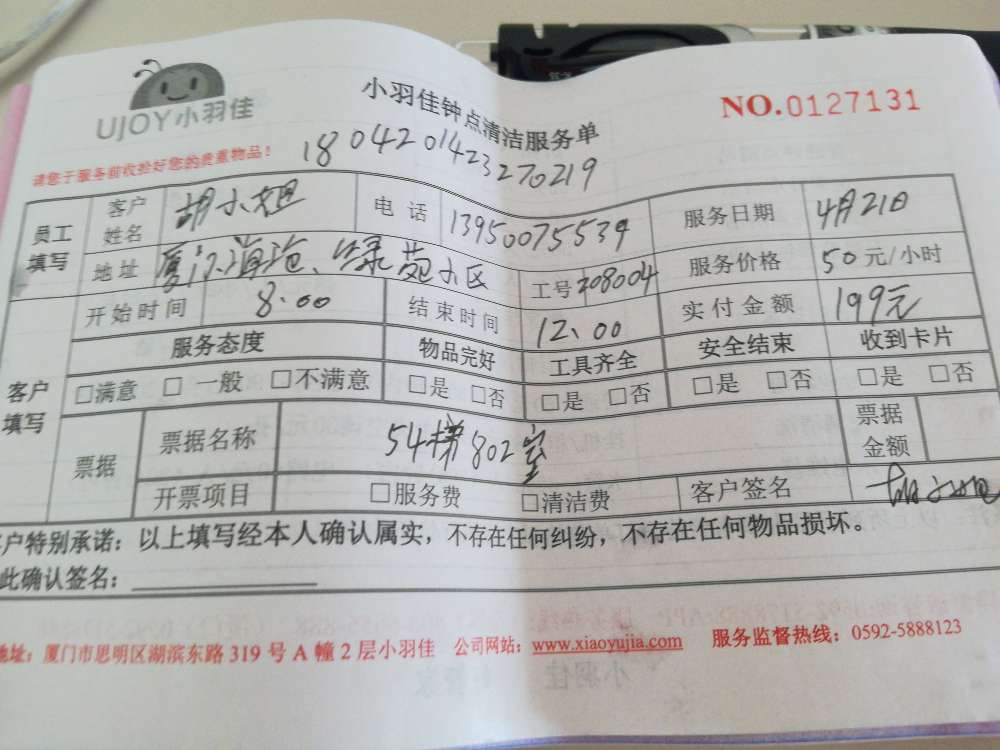 UJOY小羽佳
小羽佳钟点清洁服务单
NO.0127131
请您于服务前收拾好您的贵重物品！
180420142327 0219
员工填写 客户姓名 胡小姐 电话 13950075539 服务日期 4月21日
地址 厦门海沧、绿苑小区 工号 208004 服务价格 50元/小时
开始时间 8:00 结束时间 12:00 实付金额 199元
客户填写 服务态度 物品完好 工具齐全 安全结束 收到卡片
□满意 □一般 □不满意 □是 □否 □是 □否 □是 □否 □是 □否
票据 票据名称 54梯802室 票据金额
开票项目 □服务费 □清洁费 客户签名 胡小姐
客户特别承诺：以上填写经本人确认属实，不存在任何纠纷，不存在任何物品损坏。
此确认签名：
地址：厦门市思明区湖滨东路 319 号 A 幢 2 层小羽佳 公司网站：www.xiaoyujia.com 服务监督热线：0592-5888123